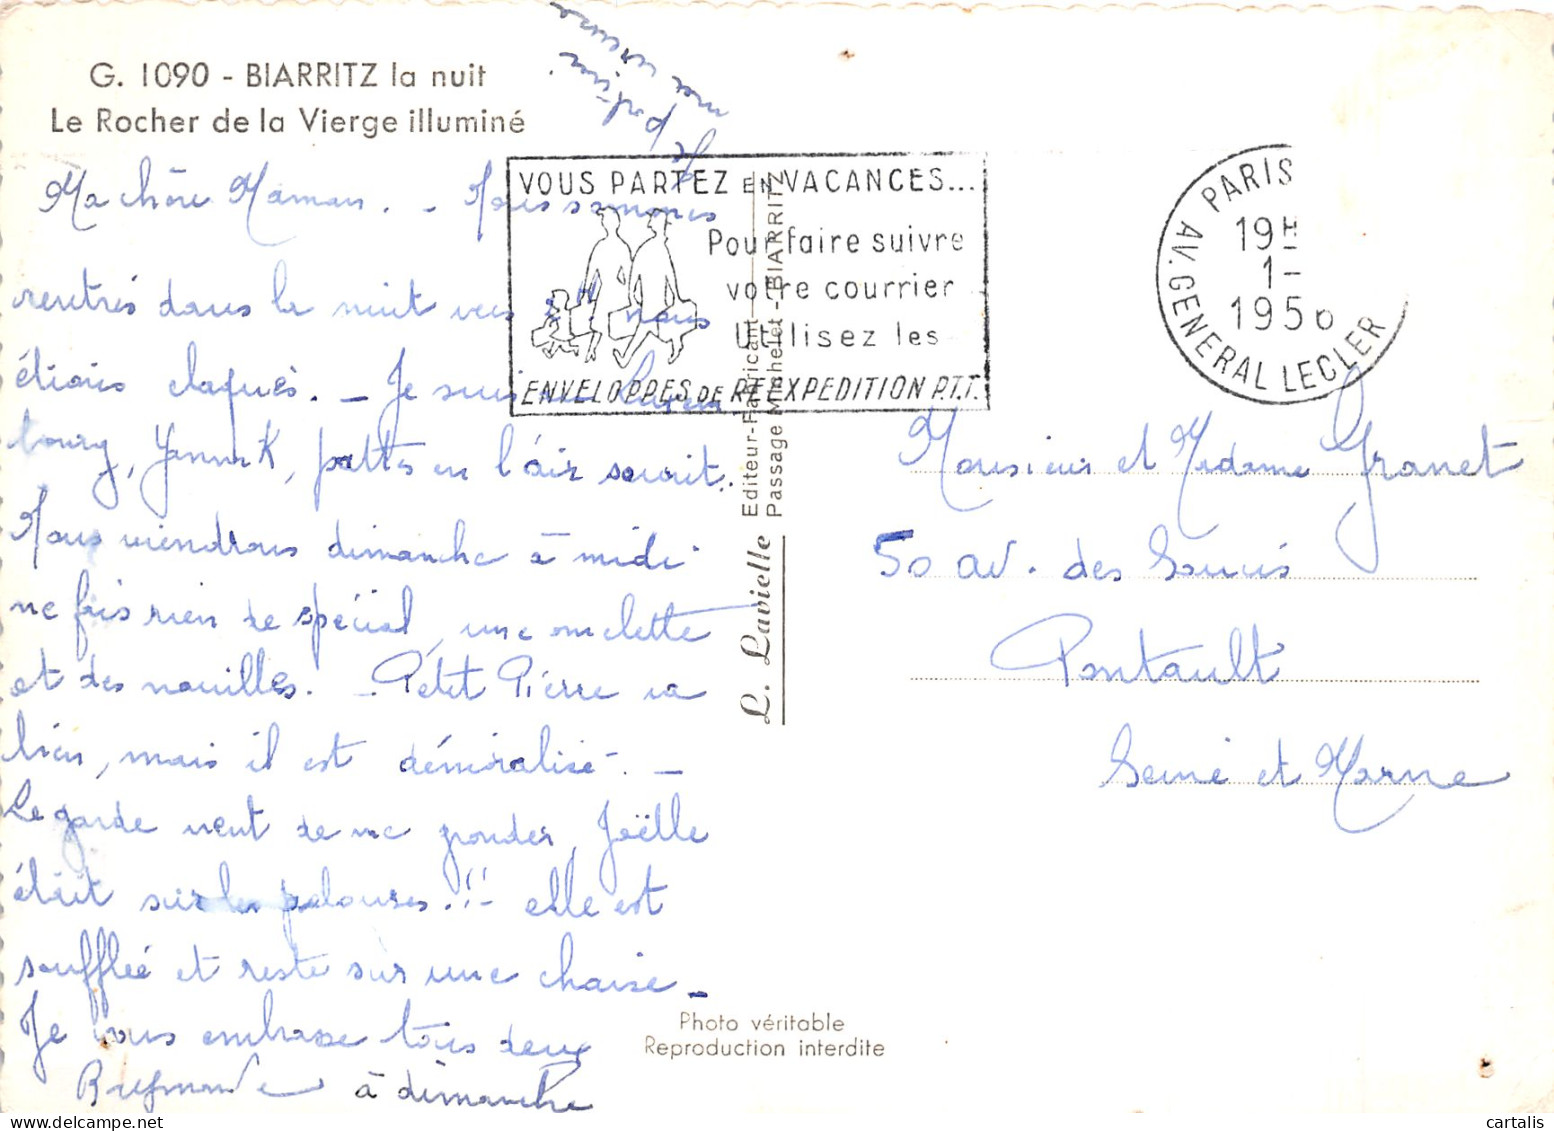 G. 1090 - BIARRITZ la nuit
Le Rocher de la Vierge illuminé
Ma chère Maman. - Nous sommes
rentrés dans la nuit vers nous
étions claqués. - Je suis au Luxem
bourg, Yannick, pattes en l'air sourit.
Nous viendrons dimanche à midi
ne fais rien de spécial, une omelette
et des nouilles. - Petit Pierre va
bien, mais il est démoralisé. -
Le garde vient de me gronder, Joëlle
était sur les pelouses.!! - elle est
soufflée et reste sur une chaise -
Je vous embrasse tous deux
Raymonde à dimanche
VOUS PARTEZ EN VACANCES...
Pour faire suivre
votre courrier
Utilisez les
ENVELOPPES DE RÉEXPEDITION P.T.T.
L. Lavielle
Editeur-Fabricant
Passage Michelet - BIARRITZ
PARIS
AV. GENERAL LECLER
19H
1-
1956
Monsieur et Madame Granet
50 av. des Soucis
Pontault
Seine et Marne
Photo véritable
Reproduction interdite
cartalis